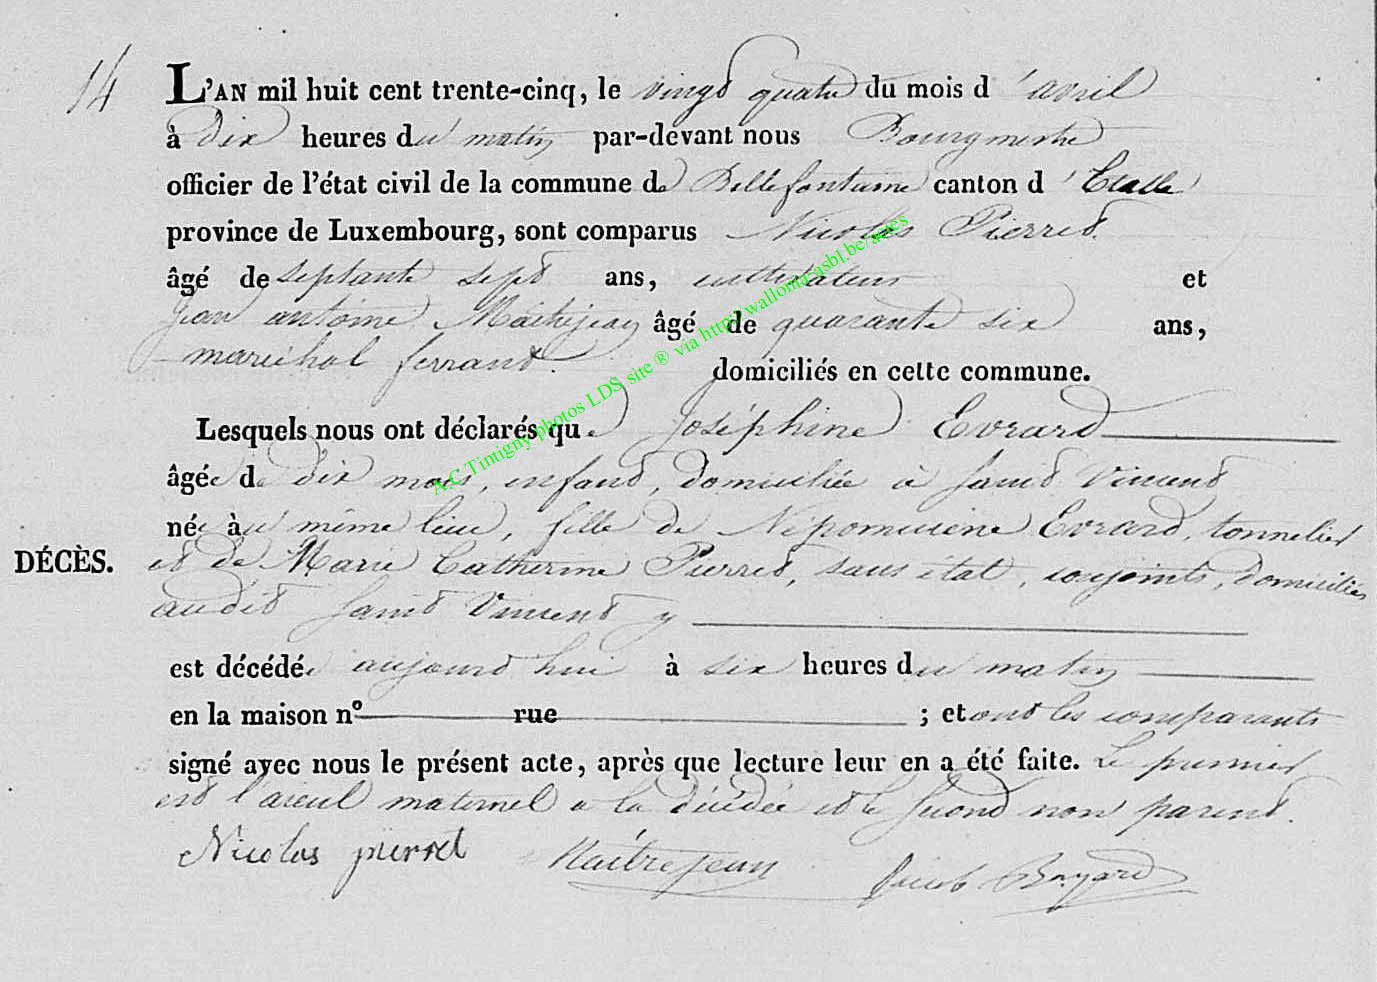 14
L'AN mil huit cent trente-cinq, le vingt quatre du mois d'avril
à dix heures du matin par-devant nous Bourgmestre
officier de l'état civil de la commune de Bellefontaine canton d'Etalle
province de Luxembourg, sont comparus Nicolas Pierret.
âgé de septante sept ans, cultivateur et
Jean antoine Maîtrejean âgé de quarante six ans,
maréchal ferrant. domiciliés en cette commune.
Lesquels nous ont déclarés que Joséphine Evrard
âgée de dix mois, enfant, domiciliée à Saint Vincent
née au même lieu, fille de Népomucène Evrard, tonnelier
DÉCÈS. et de Marie Catherine Pierret, sans état, conjoints, domiciliés
audit Saint Vincent y
est décédée aujourd'hui à six heures du matin
en la maison nº rue ; et ont les comparants
signé avec nous le présent acte, après que lecture leur en a été faite. Le premier
est l'aieul maternel a la décédée et le second non parent.
Nicolas pierret Maitrejean Jacob Bayard
A.C.Tintigny photos LDS site ® via http://wallonia-asbl.be/actes